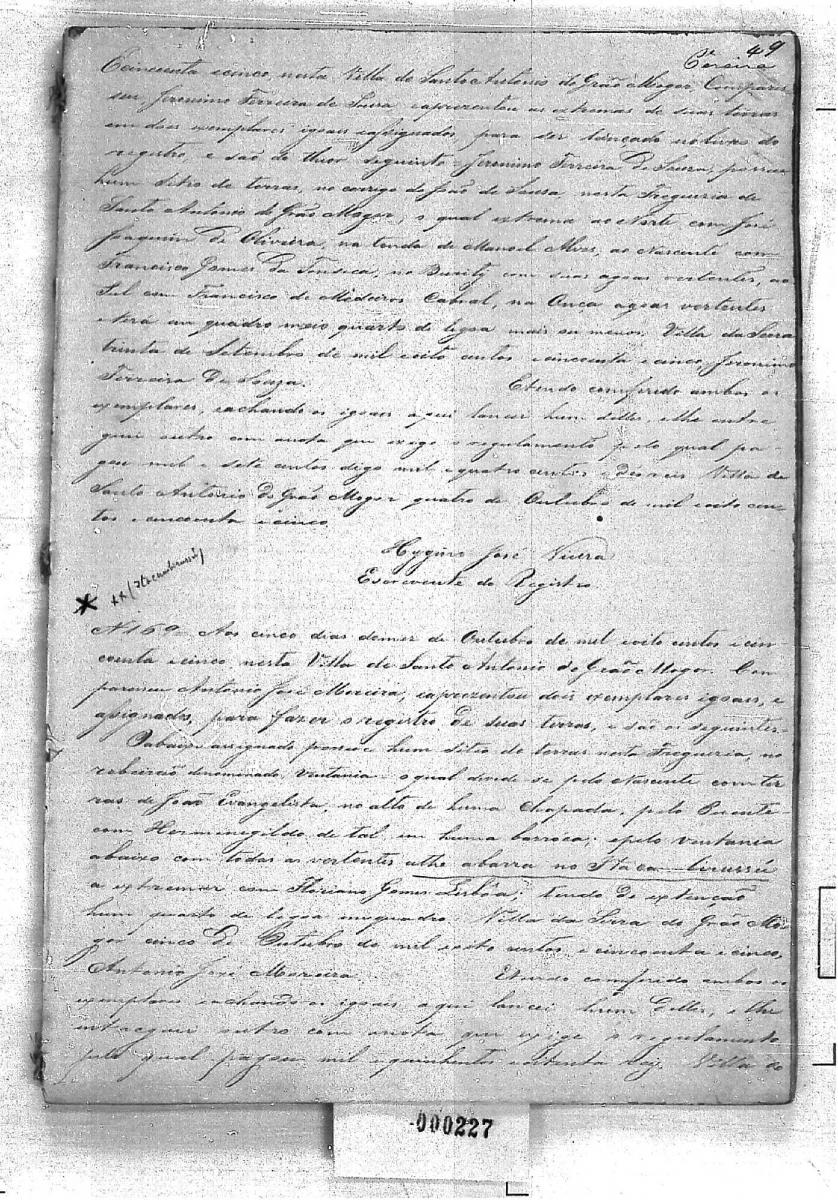 49
Pereira
Ecincoenta ecinco, nesta Villa de Santo Antonio do Grão Mogor, Compare
ceu Jeronimo Ferreira de Souza eaprezentou as extremas de suas terras
em dous exemplares igoais eassignados, para ser lançado no livro do
registro, e são do theor seguinte = Jeronimo Ferreira de Souza, possue
hum sitio de terras, no corrigo de João de Souza, nesta Freguezia de
Santo Antonio do Grão Mogor, o qual extrema ao Norte com José
Joaquim de Oliveira, na tenda de Manoel Alves, ao Nascente com
Francisco Gomes da Fonseca, no Burity com suas agoas vertentes, ao
Sul com Francisco de Medeiros Cabral, na Onça agoas vertentes
eterá em quadro meio quarto de legoa mais ou menos. Villa da Serra
trinta de Setembro de mil eoito centos ecincoenta ecinco, Jeronimo
Ferreira de Souza. Etendo comferido ambos os
exemplares, eachando os igoais aqui lancei hum delles, elhe entre
guei outro com anota que exige o regulamento pelo qual pa-
gou mil e sete centos digo mil equatro centos edesreis Villa de
Santo Antonio do Grão Mogor quatro de Outubro de mil eoito cen
tos ecincoenta ecinco.
Hygino José Vieira
Escrevente do Registro
N 169 = Aos cinco dias domez de Outubro de mil eoito centos ecin
coenta ecinco nesta Villa de Santo Antonio do Grão Mogor. Com
pareceu Antonio José Moreira, eaprezentou dois exemplares igoais, e
assignados, para fazer o registro de suas terras, e são os seguintes =
Oabaixo assignado possue hum sitio de terras nesta Freguezia, no
rebeirão denominado Ventania = oqual divide se pelo Nascente com ter
ras de João Evangelista, no alto de huma Chapada, pelo Poente
com Hermenegildo de tal em huma barróca; epelo ventania
abaixo com todas as vertentes athe abarra no Itacambirussú
a extremar com Floriano Gomes Lisbôa; tendo de extenção
hum quarto de legoa emquadro. Villa da Serra do Grão Mo-
gor cinco de Outubro de mil eoito centos ecincoenta ecinco,
Antonio José Moreira Etendo comferido ambos os
exemplares eachando os igoais, aqui lancei hum delles, elhe
intreguei outro com anota que exige o regulamento
pelo qual pagou mil equinhentos eoitenta reis. Villa de
000227